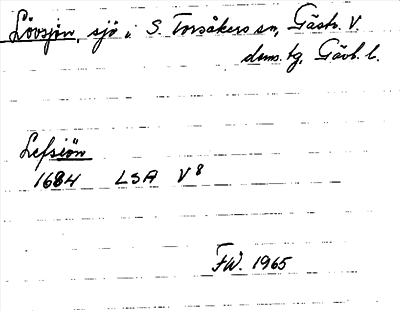 Lövsjön, sjö i S. Torsåkers sn, Gästr. V.
doms. tg, Gävl. l.
Lefsiön
1684 LSA V 8
FW. 1965